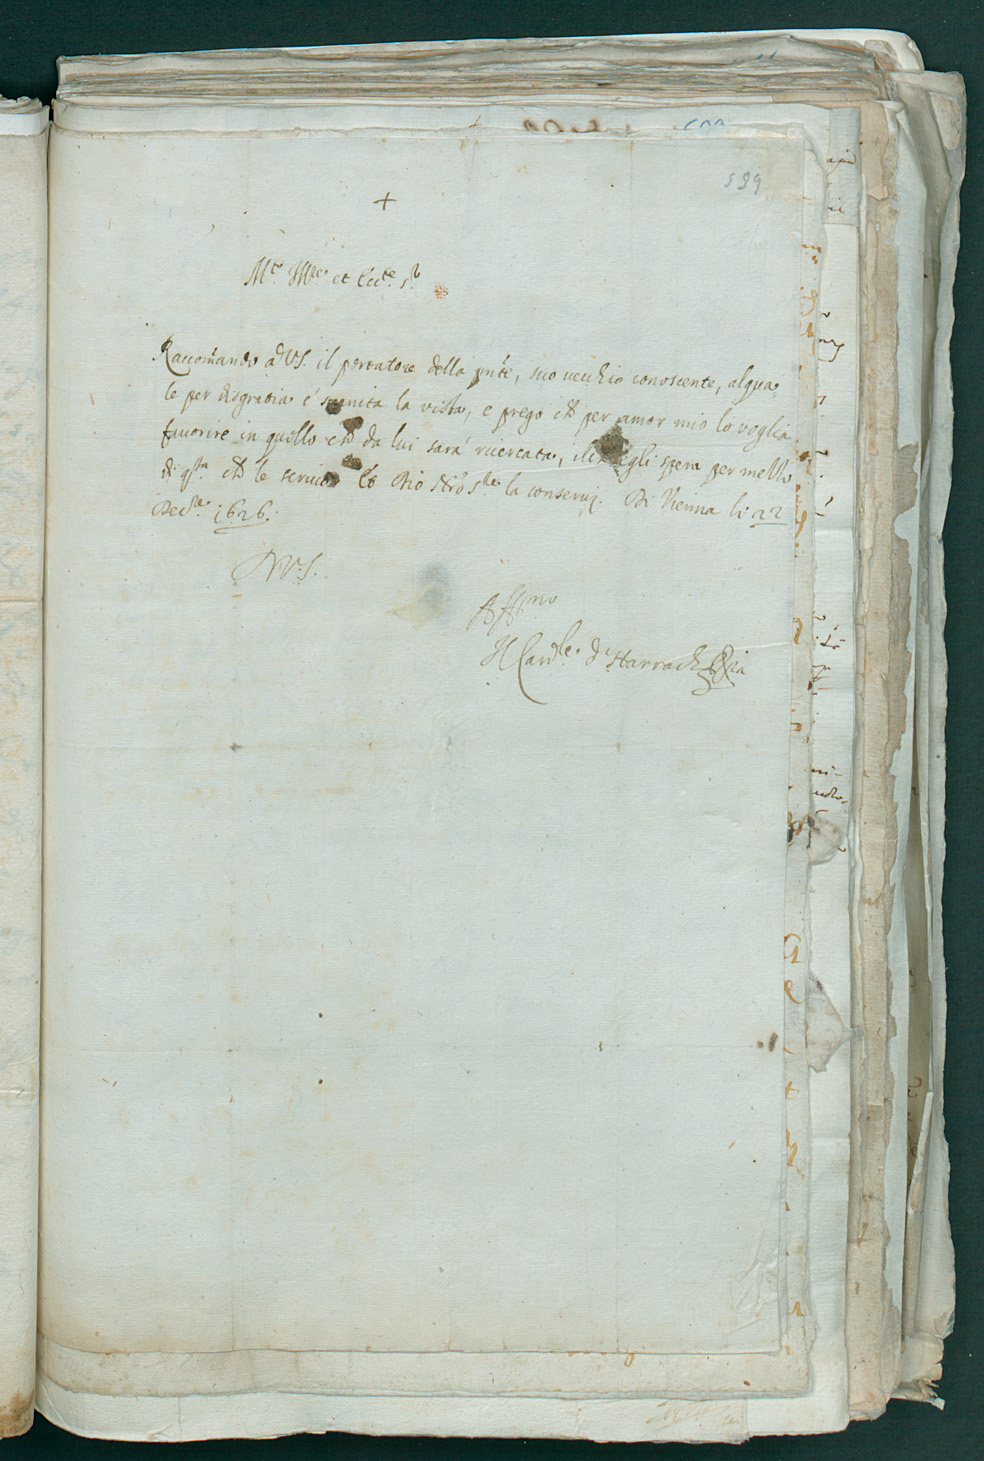 589
+
Mto. Illre. et Eccte. Sr.
Raccomando a VS. il portatore della pnte, suo vecchio conoscente, al qua-
le per disgratia è suanita la vista, e prego che per amor mio lo voglia
fauorire in quello che da lui sarà ricercata, il che egli spera per mezzo
di qsta che le scriuo. Et Dio Nro Sre. la conserui. Di Vienna li 22
Decre. 1626.
D VS.
Affmo
Il Cardle. d'Harrach